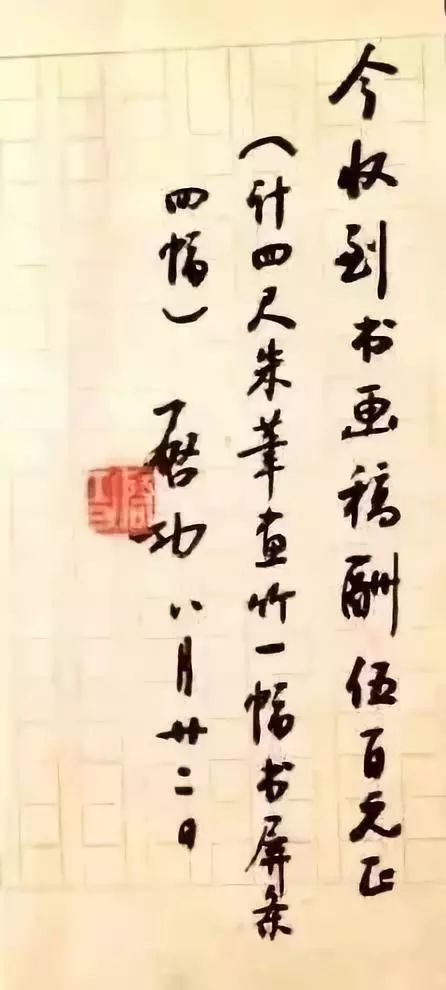 今收到书画稿酬伍百元正
（计四尺朱筆画竹一幅书屏条
四幅） 啓功 八月廿二日
啓功